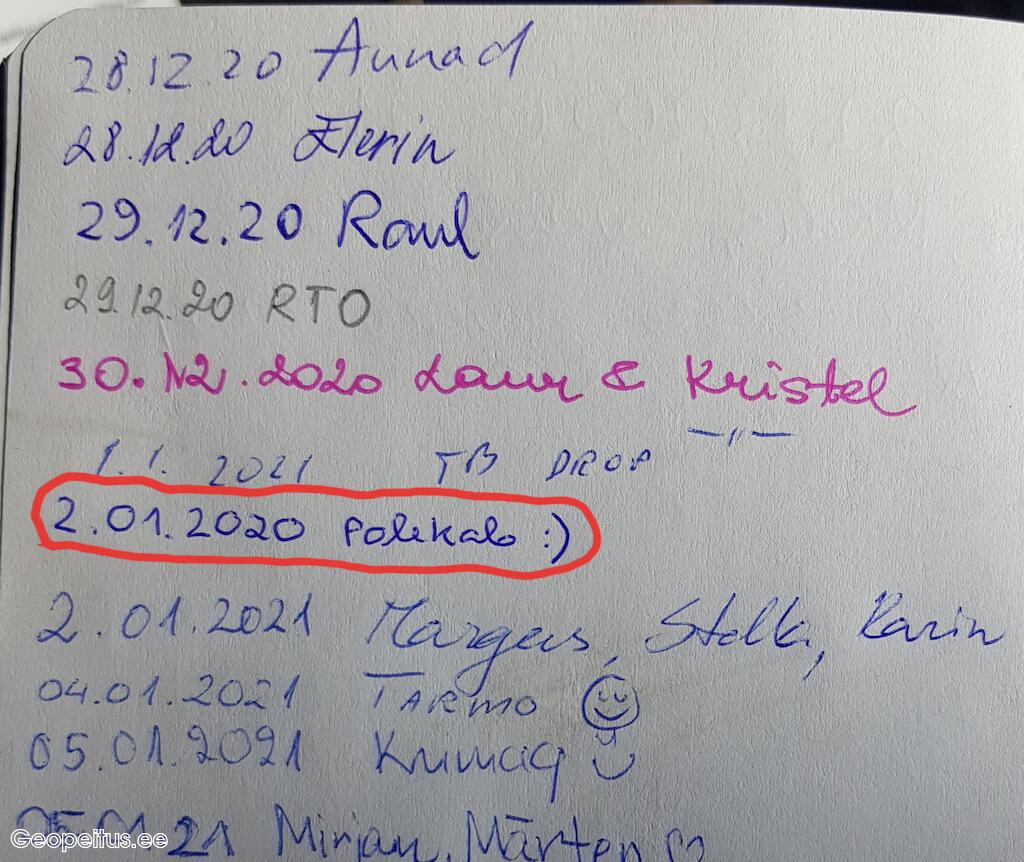 28.12.20 Annad
28.12.20 Elerin
29.12.20 Raul
29.12.20 RTO
30.12.2020 Laur & Kristel
—„—
1.1. 2021 TB DROP
2.01.2020 Polekalo :)
2.01.2021 Margus, Stella, Karin
04.01.2021 TARMO
05.01.2021
05.01.21 Mirjan, Märten
Geopeitus.ee